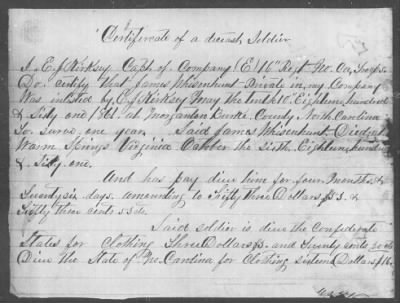 Certificate of a deceast Soldier
I, E. J. Kirksey Capt. of Company (E) 16th Regt No. Ca, Troops
Do. certify that James Whisenhunt Private in my Company
Was inlisted by E J Kirksey May the tenth 10. Eighteen hundred
& Sixty one 1861. at Morganton Burke County North Carolina
To. surve one year. Said James Whisenhunt Died at
Warm Springs Virginia October the sixth Eighteen hundred
& Sixty. one.
And has pay due him for four Months &
Twenty six days. amounting to Fifty three Dollars $53. &
Fifty three cents 53 cts.
Said soldier is due the Confederate
States for clothing Three Dollars $3. and Twenty cents 20 cts
Due the State of No. Carolina for clothing sixteen Dollars $16.